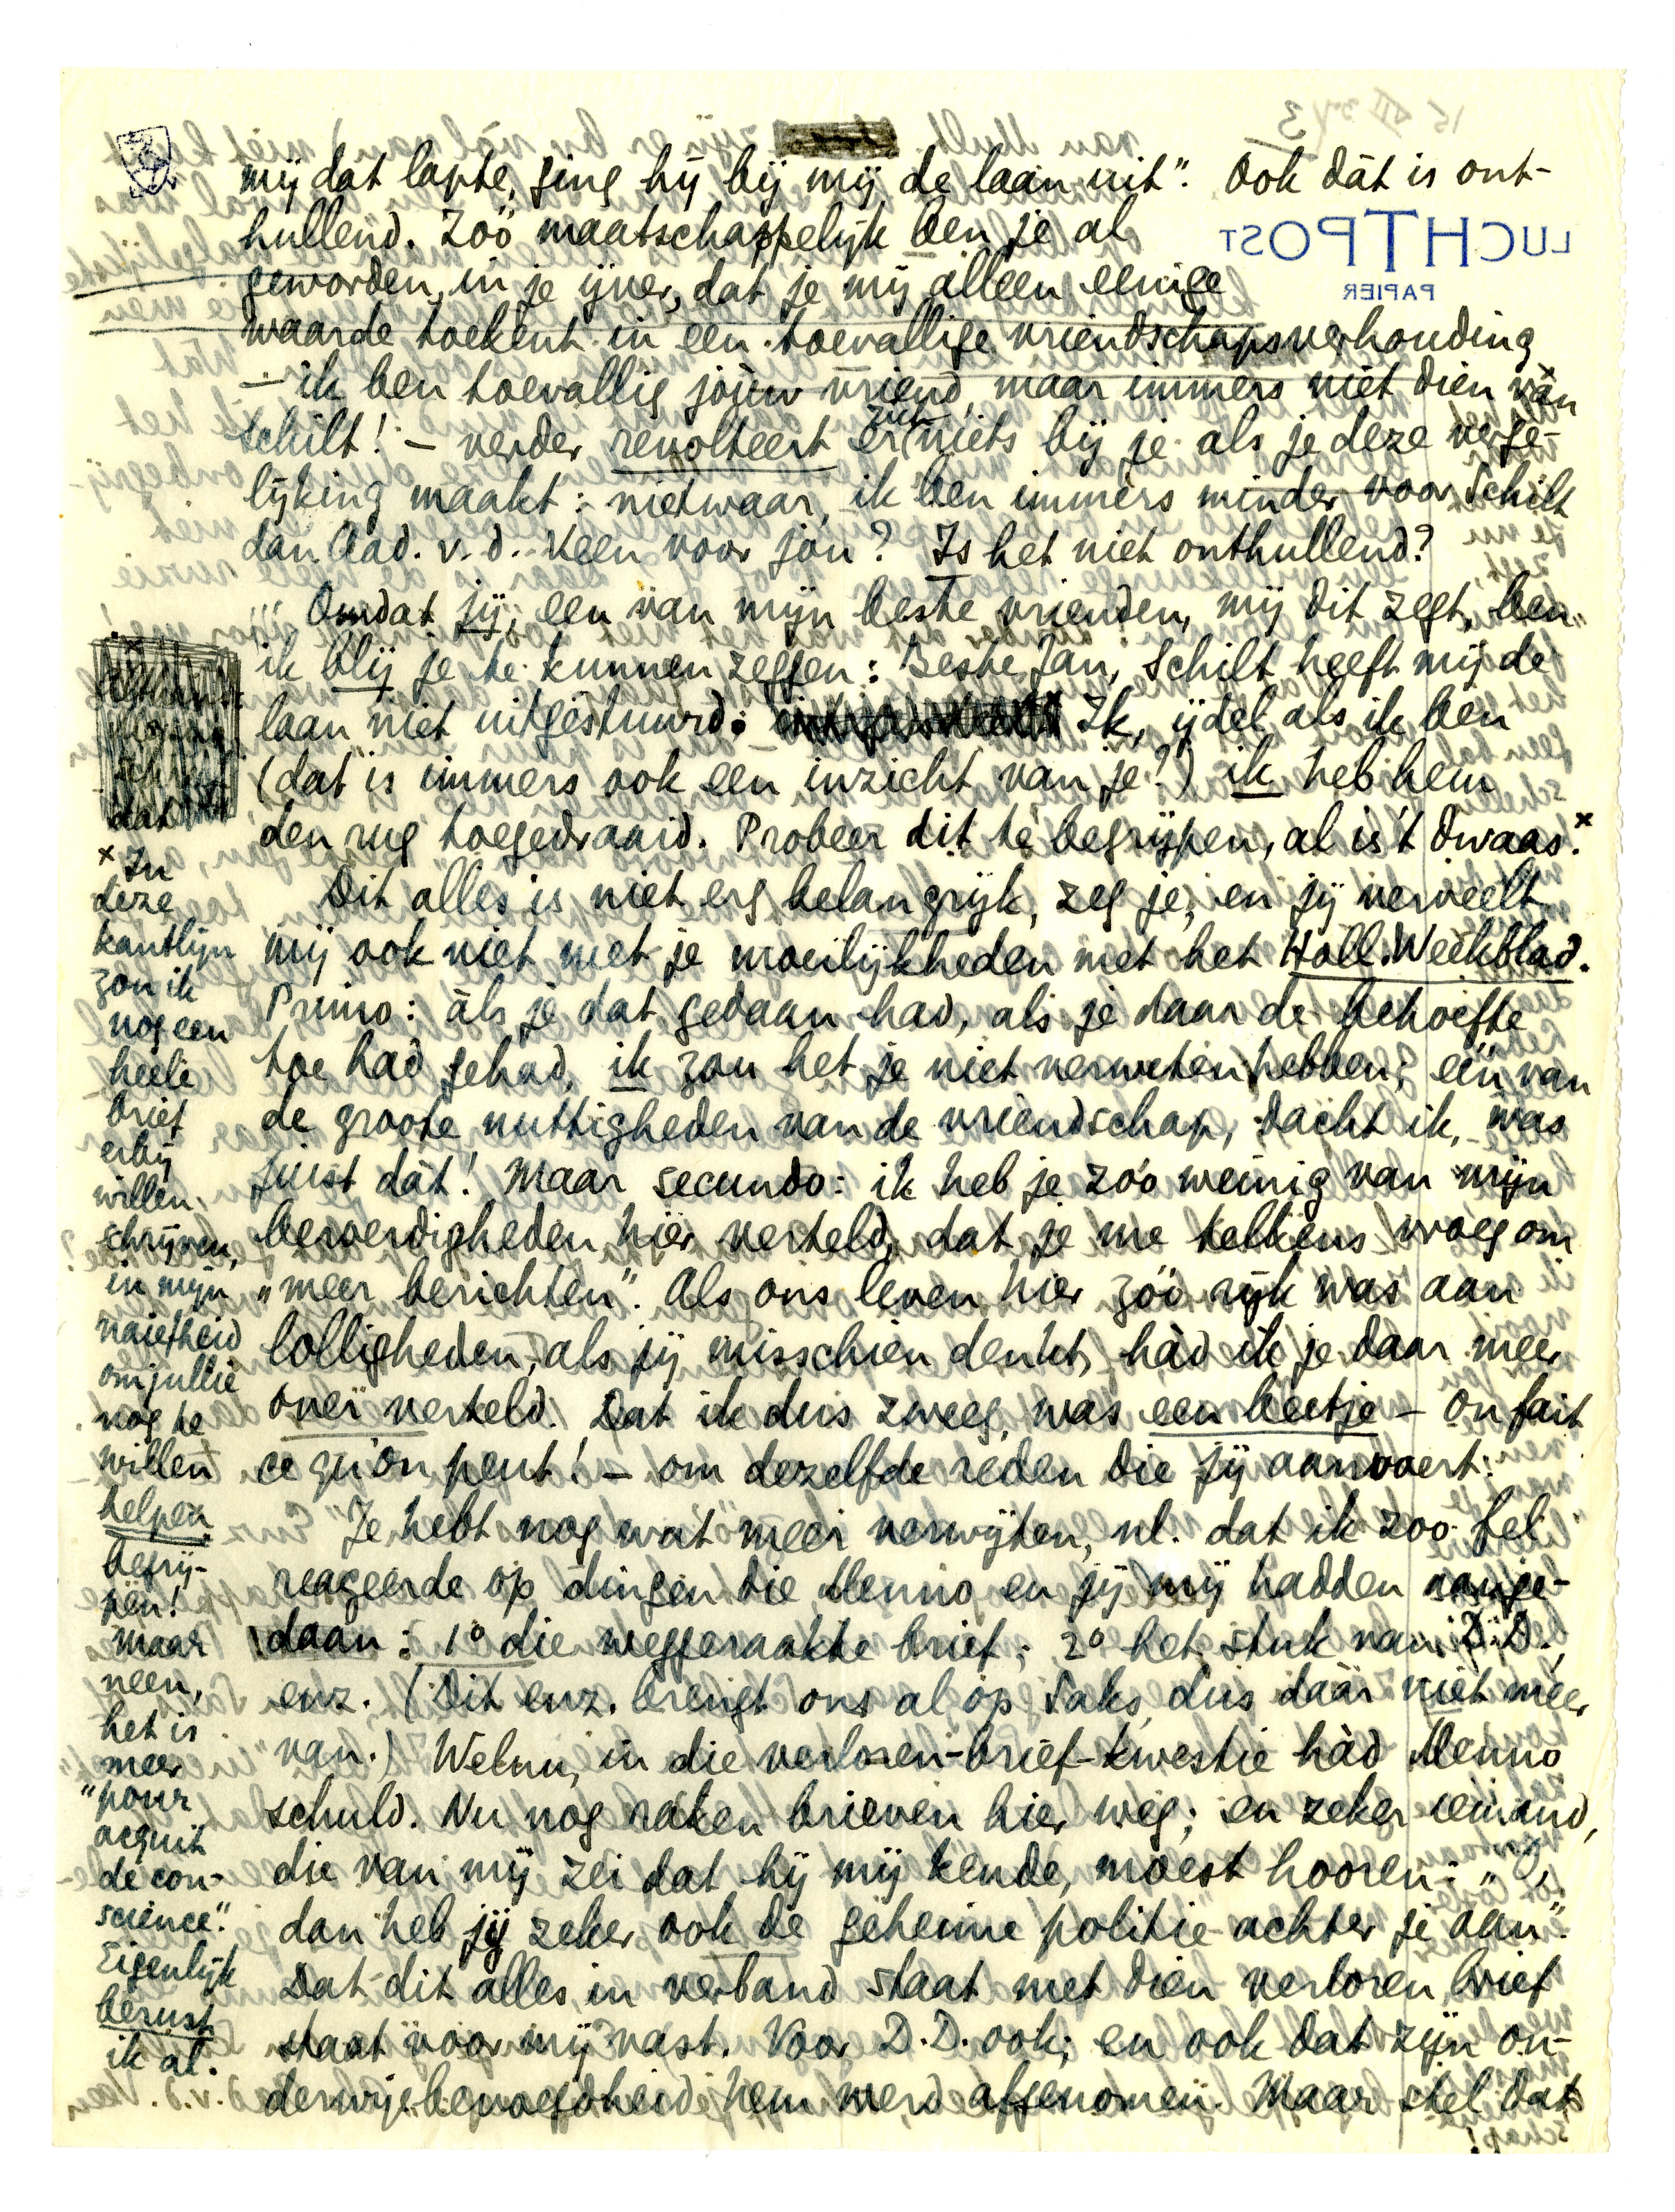 3
mij dat lapte, ging hij bij mij de laan uit". Ook dàt is ont-
hullend. Zóó maatschappelijk ben je al
geworden, in je ijver, dat je mij alleen eenige
waarde toekent in een toevallige vriendschapsverhouding
— ik ben toevallig jóúw vriend, maar immers niet dien van
Schilt! — verder revolteert er zich niets bij je als je deze verge-
lijking maakt: nietwaar, ik ben immers minder voor Schilt
dan Aad. v. d. Veen voor jou? Is het niet onthullend?
Omdat jij, een van mijn beste vrienden, mij dit zegt, ben
ik blij je te kunnen zeggen: Beste Jan, Schilt heeft mij de
laan niet uitgestuurd: Ik, ijdel als ik ben
(dat is immers ook een inzicht van je?) ik heb hem
den rug toegedraaid. Probeer dit te begrijpen, al is 't dwaas.x
Dit alles is niet erg belangrijk, zeg je, en jij verveelt
mij ook niet met je moeilijkheden met het Holl. Weekblad.
Primo: àls je dat gedaan had, als je daar de behoefte
toe had gehad, ik zou het je niet verweten hebben; een van
de groote nuttigheden van de vriendschap, dacht ik, was
juist dàt! Maar secundo: ik heb je zóó weinig van mijn
beroerdigheden hier verteld, dat je me telkens vroeg om
„meer berichten". Als ons leven hier zóó rijk was aan
lolligheden, als jij misschien denkt, hàd ik je daar meer
over verteld. Dat ik dus zweeg, was een beetje — on fait
ce qu'on peut! — om dezelfde reden die jij aanvoert.
Je hebt nog wat meer verwijten, nl. dat ik zoo fel
reageerde op dingen die Menno en jij mij hadden aange-
daan: 1° die weggeraakte brief; 2° het stuk van D.D.,
enz. (Dit enz. brengt ons al op Saks, dus dáár niet meer
van.) Welnu, in die verloren-brief-kwestie hàd Menno
schuld. Nu nog raken brieven hier weg; en zeker iemand,
die van mij zei dat hij mij kende, moest hooren: „O,
dan heb jij zeker ook de geheime politie achter je aan".
Dat dit alles in verband staat met dien verloren brief
staat voor mij vast. Voor D.D. ook; en ook dat zijn on-
derwijsbevoegdheid hem werd afgenomen. Maar stel dat
x In
deze
kantlijn
zou ik
nog een
heele
brief
erbij
willen
schrijven,
in mijn
naiefheid
om jullie
nog te
willen
helpen
begrij-
pen!
maar
neen,
het is
meer
"pour
acquit
de con-
science."
Eigenlijk
berust
ik al.
LUCHTPOST
PAPIER